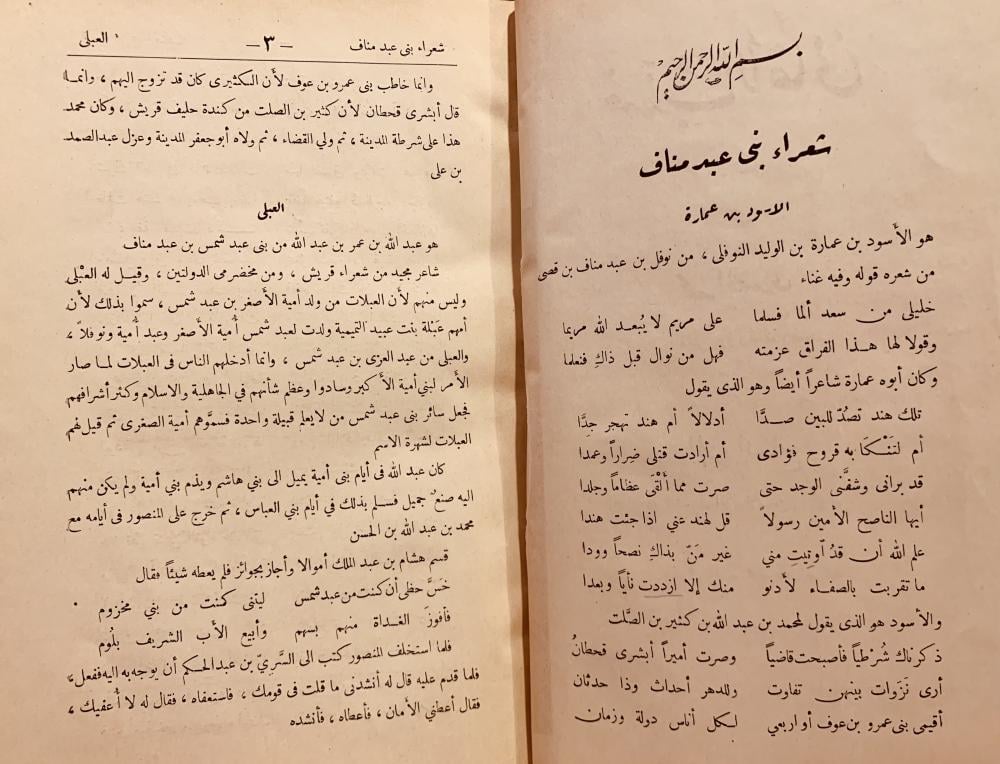 بسم الله الرحمن الرحيم
شعراء بنى عبد مناف
الاسود بن عمارة
هو الأسود بن عمارة بن الوليد النوفلى ، من نوفل بن عبد مناف بن قصى
من شعره قوله وفيه غناء
خليلى من سعد ألما فسلما على مريم لا يُبعد الله مريما
وقولا لها هذا الفراق عزمته فهل من نوال قبل ذاكِ فنعلما
وكان أبوه عمارة شاعراً أيضاً وهو الذى يقول
تلك هند تصُدّ للبين صدَّا أدلالاً أم هند تهجر جدَّا
أم لتَنْكَا به قروح فؤادى أم أرادت قتلى ضِراراً وعمدا
قد برانى وشفَّنى الوجد حتى صرت مما أَلْقَى عظاماً وجلدا
أيها الناصح الأمين رسولاً قل لهند عنى اذا جئت هندا
علم الله أن قد أوتِيتِ منى غير مَنّ بذاكِ نصحاً وودا
ما تقربت بالصفاء لأدنو منك إلا ازددت نأياً وبعدا
والأسود هو الذى يقول لمحمد بن عبد الله بن كثير بن الصَّلت
ذكرناك شُرْطِياً فأصبحت قاضياً وصرت أميراً أبشرى قحطانُ
أرى نَزَوات بينهن تفاوت وللدهر أحداث وذا حدثان
أقيمى بنى عمرو بن عوف أو اربعي لكل أناس دولة وزمان
شعراء بنى عبد مناف — ٣ — العبلى
وانما خاطب بنى عمرو بن عوف لأن الكثيرى كان قد تزوج اليهم ، وانما
قال أبشرى قحطان لأن كثير بن الصلت من كندة حليف قريش ، وكان محمد
هذا على شرطة المدينة ، ثم ولي القضاء ، ثم ولاه أبو جعفر المدينة وعزل عبد الصمد
بن على
العبلى
هو عبد الله بن عمر بن عبد الله من بنى عبد شمس بن عبد مناف
شاعر مجيد من شعراء قريش ، ومن مخضرمى الدولتين ، وقيل له العبْلى
وليس منهم لأن العبلات من ولد أمية الأصغر بن عبد شمس ، سموا بذلك لأن
أمهم عَبْلة بنت عبيد التميمية ولدت لعبد شمس أُمية الأصغر وعبد أُمية ونوفلاً ،
والعبلى من عبد العزى بن عبد شمس ، وانما أدخلهم الناس فى العبلات لما صار
الأمر لبني أمية الأكبر وسادوا وعظم شأنهم في الجاهلية والاسلام وكثر أشرافهم
فجعل سائر بنى عبد شمس من لا يعلم قبيلة واحدة فسمَّوهم أمية الصغرى ثم قيل لهم
العبلات لشهرة الاسم
كان عبد الله فى أيام بنى أمية يميل الى بني هاشم ويذم بني أمية ولم يكن منهم
اليه صنع جميل فسلم بذلك في أيام بني العباس ، ثم خرج على المنصور فى أيامه مع
محمد بن عبد الله بن الحسن
قسم هشام بن عبد الملك أموالا وأجاز بجوائز فلم يعطه شيئاً فقال
خَسَّ حظى أن كنت من عبد شمس ليتنى كنت من بني مخزوم
فأفوزَ الغداة منهم بسهم وأبيع الأب الشريف بلُوم
فلما استخلف المنصور كتب الى السَّرِيّ بن عبد الحكم أن يوجه به اليه ففعل ،
فلما قدم عليه قال له أنشدنى ما قلت فى قومك ، فاستعفاه ، فقال له لا أُعفيك ،
فقال أعطني الأمان ، فأعطاه ، فأنشده